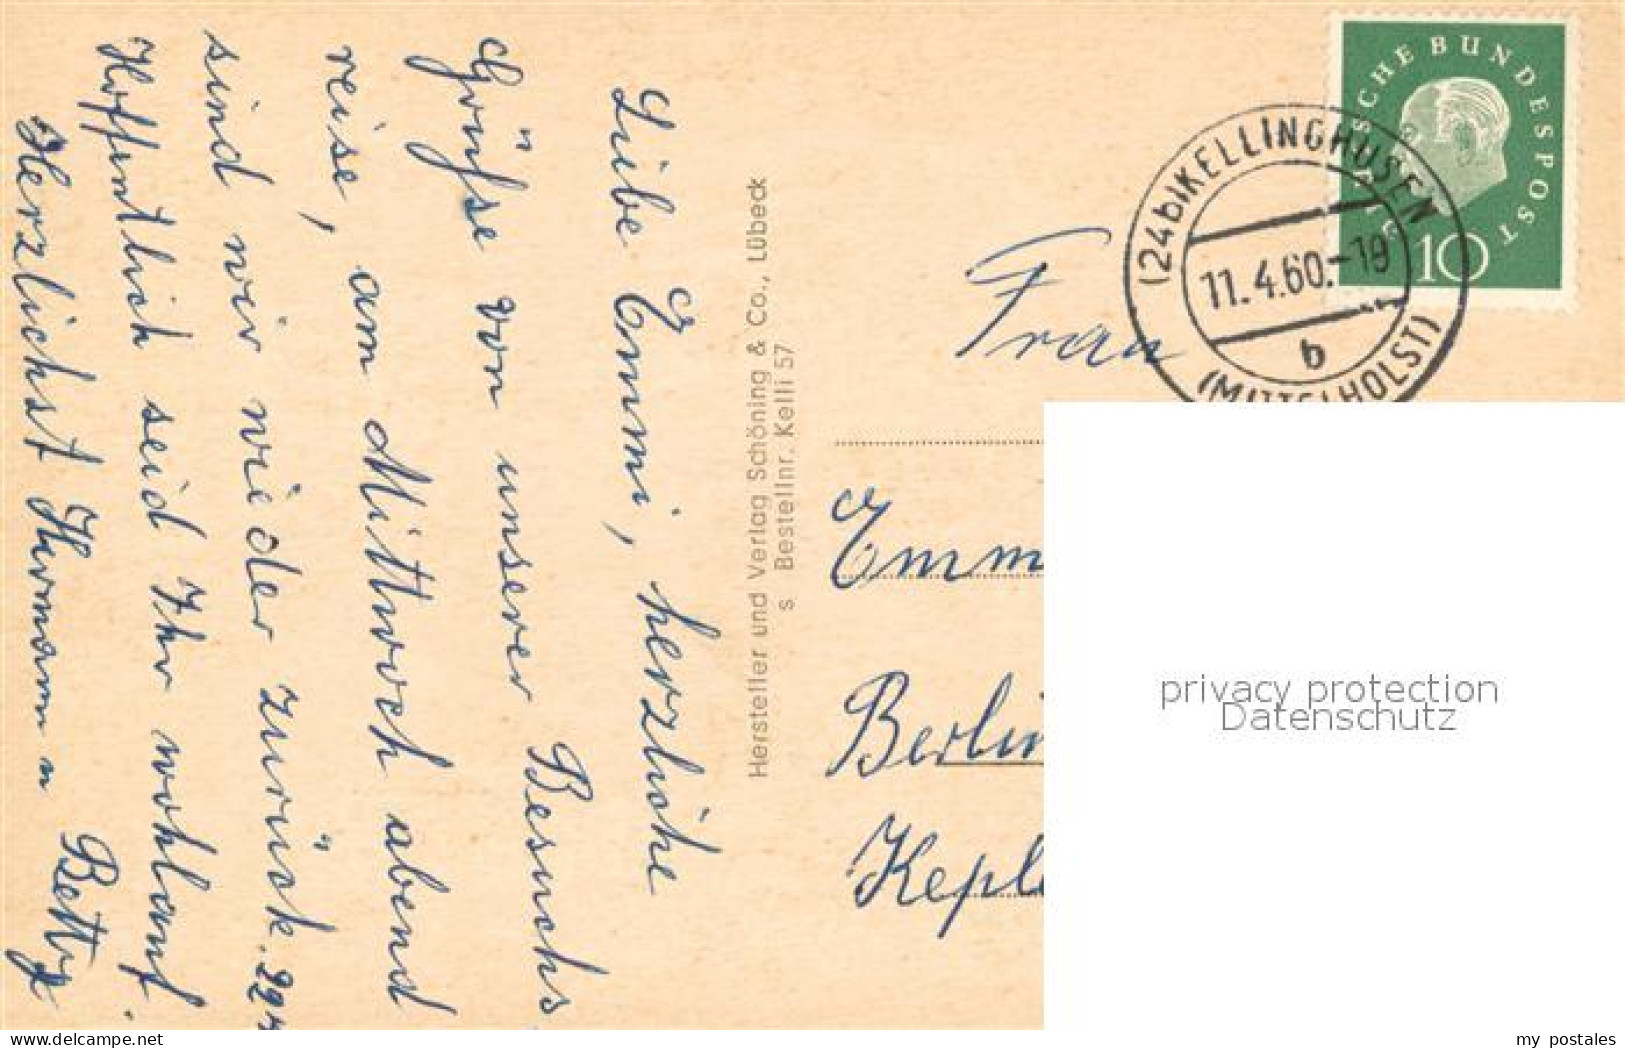 Liebe Emmi, herzliche
Grüße von unserer Besuchs
reise, am Mittwoch abend
sind wir wieder zurück.
Hoffentlich seid Ihr wohlauf.
Herzlichst Hermann u Betty
Hersteller und Verlag Schöning & Co., Lübeck
s Bestellnr. Kelli 57
DEUTSCHE BUNDESPOST
10
(24b) KELLINGHUSEN
11.4.60.-19
b
(MITTELHOLST)
Frau
Emm
Berlin
Kepl
privacy protection
Datenschutz
delcampe.net
my_postales